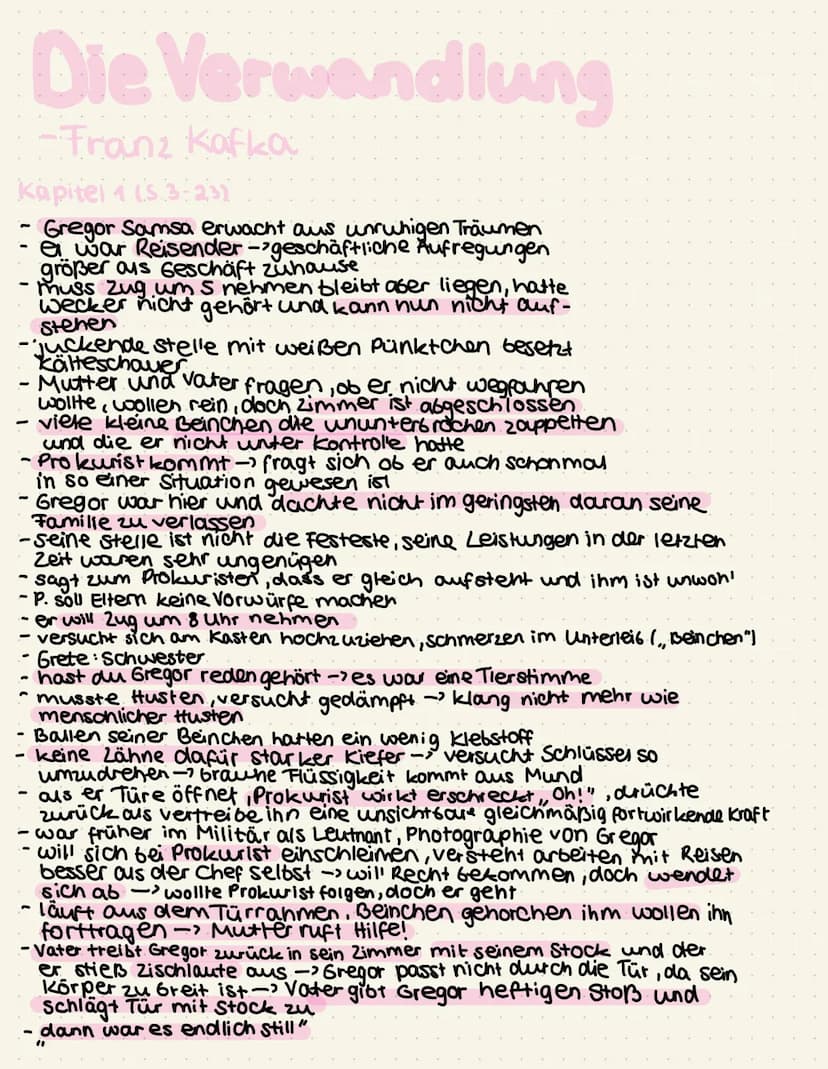 Die Verwandlung
-Franz Kafka
Kapitel 1 (S.3-23)
- Gregor Samsa erwacht aus unruhigen Träumen
- er war Reisender -> geschäftliche Aufregungen
größer als Geschäft zuhause
- muss Zug um 5 nehmen bleibt aber liegen, hatte
Wecker nicht gehört und kann nun nicht auf-
stehen
- juckende Stelle mit weißen Pünktchen besetzt
Kälteschauer
- Mutter und Vater fragen, ob er nicht wegfahren
wollte, wollen rein, doch Zimmer ist abgeschlossen
- viele kleine Beinchen die ununterbrochen zappelten
und die er nicht unter Kontrolle hatte
- Prokurist kommt -> fragt sich ob er auch schonmal
in so einer Situation gewesen ist
- Gregor war hier und dachte nicht im geringsten daran seine
Familie zu verlassen
- seine Stelle ist nicht die Festeste, seine Leistungen in der letzten
Zeit waren sehr ungenügen
- sagt zum Prokuristen, dass er gleich aufsteht und ihm ist unwohl
- P. soll Eltern keine Vorwürfe machen
- er will Zug um 8 Uhr nehmen
- versucht sich am Kasten hochzuziehen, schmerzen im Unterleib („Beinchen")
- Grete: Schwester
- hast du Gregor reden gehört -> es war eine Tierstimme
- musste Husten, versucht gedämpft -> klang nicht mehr wie
menschlicher Husten
- Ballen seiner Beinchen hatten ein wenig Klebstoff
- keine Zähne dafür starker Kiefer -> versucht Schlüssel so
umzudrehen -> braune Flüssigkeit kommt aus Mund
- als er Türe öffnet, Prokurist wirkt erschreckt „Oh!", drückte
zurück als vertreibe ihn eine unsichtbare gleichmäßig fortwirkende Kraft
- war früher im Militär als Leutnant, Photographie von Gregor
- will sich bei Prokurist einschleimen, versteht arbeiten mit Reisen
besser als der Chef selbst -> will Recht bekommen, doch wendet
sich ab -> wollte Prokurist folgen, doch er geht
- läuft aus dem Türrahmen, Beinchen gehorchen ihm wollen ihn
forttragen -> Mutter ruft Hilfe!
- Vater treibt Gregor zurück in sein Zimmer mit seinem Stock und der
er stieß Zischlaute aus -> Gregor passt nicht durch die Tür, da sein
Körper zu breit ist -> Vater gibt Gregor heftigen Stoß und
schlägt Tür mit Stock zu
- „dann war es endlich still"